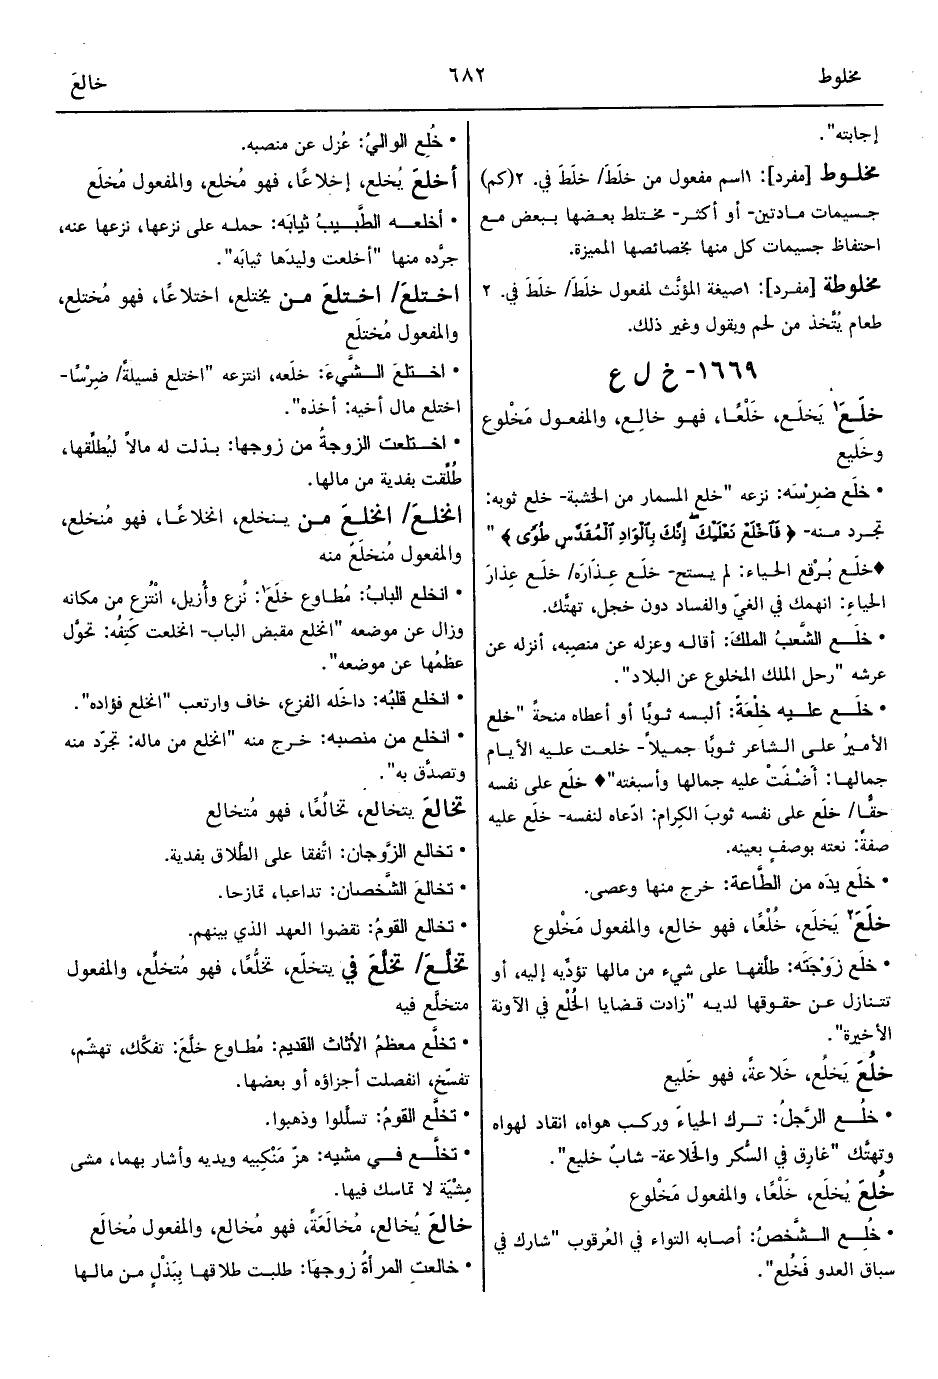 مخلوط
٦٨٢
خالعَ
إجابته".
مخلوط [مفرد]: ١اسم مفعول من خلَطَ/ خلَطَ في. ٢(كم)
جسيمات مادتين- أو أكثر- مختلط بعضها ببعض مع
احتفاظ جسيمات كل منها بخصائصها المميزة.
مخلوطة [مفرد]: ١صيغة المؤنَّث لمفعول خلَطَ/ خلَطَ في. ٢
طعام يُتَّخذ من لحم وبقول وغير ذلك.
١٦٦٩- خ ل ع
خلَعَ١ يَخلَع، خَلْعًا، فهو خالِع، والمفعول مَخْلوع
وخَليع
• خلَع ضِرْسَه: نزعه "خلع المسمار من الخشبة- خلع ثوبه:
تجرد منه- ﴿ فَاخْلَعْ نَعْلَيْكَ إِنَّكَ بِالْوَادِ الْمُقَدَّسِ طُوًى ﴾ "
♦خلَع بُرْقع الحياء: لم يستح- خلَع عِذارَه/ خلَع عِذارَ
الحياءِ: انهمك في الغيّ والفساد دون خجل، تهتَّك.
• خلَع الشَّعبُ الملكَ: أقاله وعزله عن منصبه، أنزله عن
عرشه "رحل الملك المخلوع عن البلاد".
• خلَع عليه خِلْعةً: ألبسه ثوبًا أو أعطاه منحةً "خلع
الأميرُ على الشاعر ثوبًا جميلاً- خلعت عليه الأيام
جمالها: أضْفَتْ عليه جمالها وأسبغته"♦ خلَع على نفسه
حقًّا/ خلَع على نفسه ثوبَ الكِرام: ادّعاه لنفسه- خلَع عليه
صفةً: نعته بوصفٍ بعينه.
• خلَع يدَه من الطَّاعة: خرج منها وعصى.
خلَعَ٢ يَخلَع، خُلْعًا، فهو خالع، والمفعول مَخْلوع
• خلَع زَوْجَتَه: طلَّقها على شيء من مالها تؤدّيه إليه، أو
تتنازل عن حقوقها لديه "زادت قضايا الخُلْع في الآونة
الأخيرة".
خلُعَ يَخلُع، خَلاعةً، فهو خَليع
• خلُع الرَّجلُ: ترك الحياءَ وركب هواه، انقاد لهواه
وتهتَّك "غارِق في السُّكر والخَلاعة- شابٌ خليع".
خُلِعَ يُخلَع، خَلْعًا، والمفعول مَخْلوع
• خُلِع الشَّخصُ: أصابه التواء في العُرقوب "شارك في
سباق العدو فَخُلع".
• خُلِع الوالي: عُزل عن منصبه.
أخلعَ يُخلع، إخلاعًا، فهو مُخلع، والمفعول مُخلَع
• أخلعه الطَّبيبُ ثيابَه: حمله على نزعها، نزعها عنه،
جرَّده منها "أخلعت وليدَها ثيابَه".
اختلعَ/ اختلعَ من يختلع، اختلاعًا، فهو مُختلِع،
والمفعول مُختلَع
• اختلعَ الشَّيءَ: خلَعه، انتزعه "اختلع فسيلةً/ ضِرْسًا-
اختلع مال أخيه: أخذه".
• اختلعت الزوجةُ من زوجها: بذلت له مالاً ليُطلِّقها،
طُلِّقت بفدية من مالها.
انخلعَ/ انخلعَ من ينخلع، انخلاعًا، فهو مُنخلع،
والمفعول مُنخلَعٌ منه
• انخلع البابُ: مُطاوع خلَعَ١: نُزع وأُزيل، انتُزع من مكانه
وزال عن موضعه "انخلع مقبض الباب- انخلعت كَتِفُه: تحوَّل
عظمُها عن موضعه".
• انخلع قلبُه: داخَله الفزع، خاف وارتعب "انخلع فؤاده".
• انخلع من منصبه: خرج منه "انخلع من ماله: تجرّد منه
وتصدَّق به".
تخالعَ يتخالع، تخالُعًا، فهو مُتخالع
• تخالع الزَّوجان: اتَّفقا على الطَّلاق بفدية.
• تخالعَ الشَّخصان: تداعبا، تمازحا.
• تخالع القومُ: نقضوا العهد الذي بينهم.
تخلَّعَ/ تخلَّعَ في يتخلَّع، تخلُّعًا، فهو مُتخلِّع، والمفعول
متخلَّع فيه
• تخلَّع معظمُ الأثاث القديم: مُطاوع خلَّعَ: تفكَّك، تهشَّم،
تفسّخ، انفصلت أجزاؤه أو بعضها.
• تخلَّع القومُ: تسلَّلوا وذهبوا.
• تخلَّع في مشيه: هزّ مَنْكِبيه ويديه وأشار بهما، مشى
مِشْيَة لا تماسك فيها.
خالعَ يُخالع، مُخالَعَةً، فهو مُخالع، والمفعول مُخالَع
• خالعت المرأةُ زوجَها: طلبت طلاقها بِبَذْلٍ من مالها